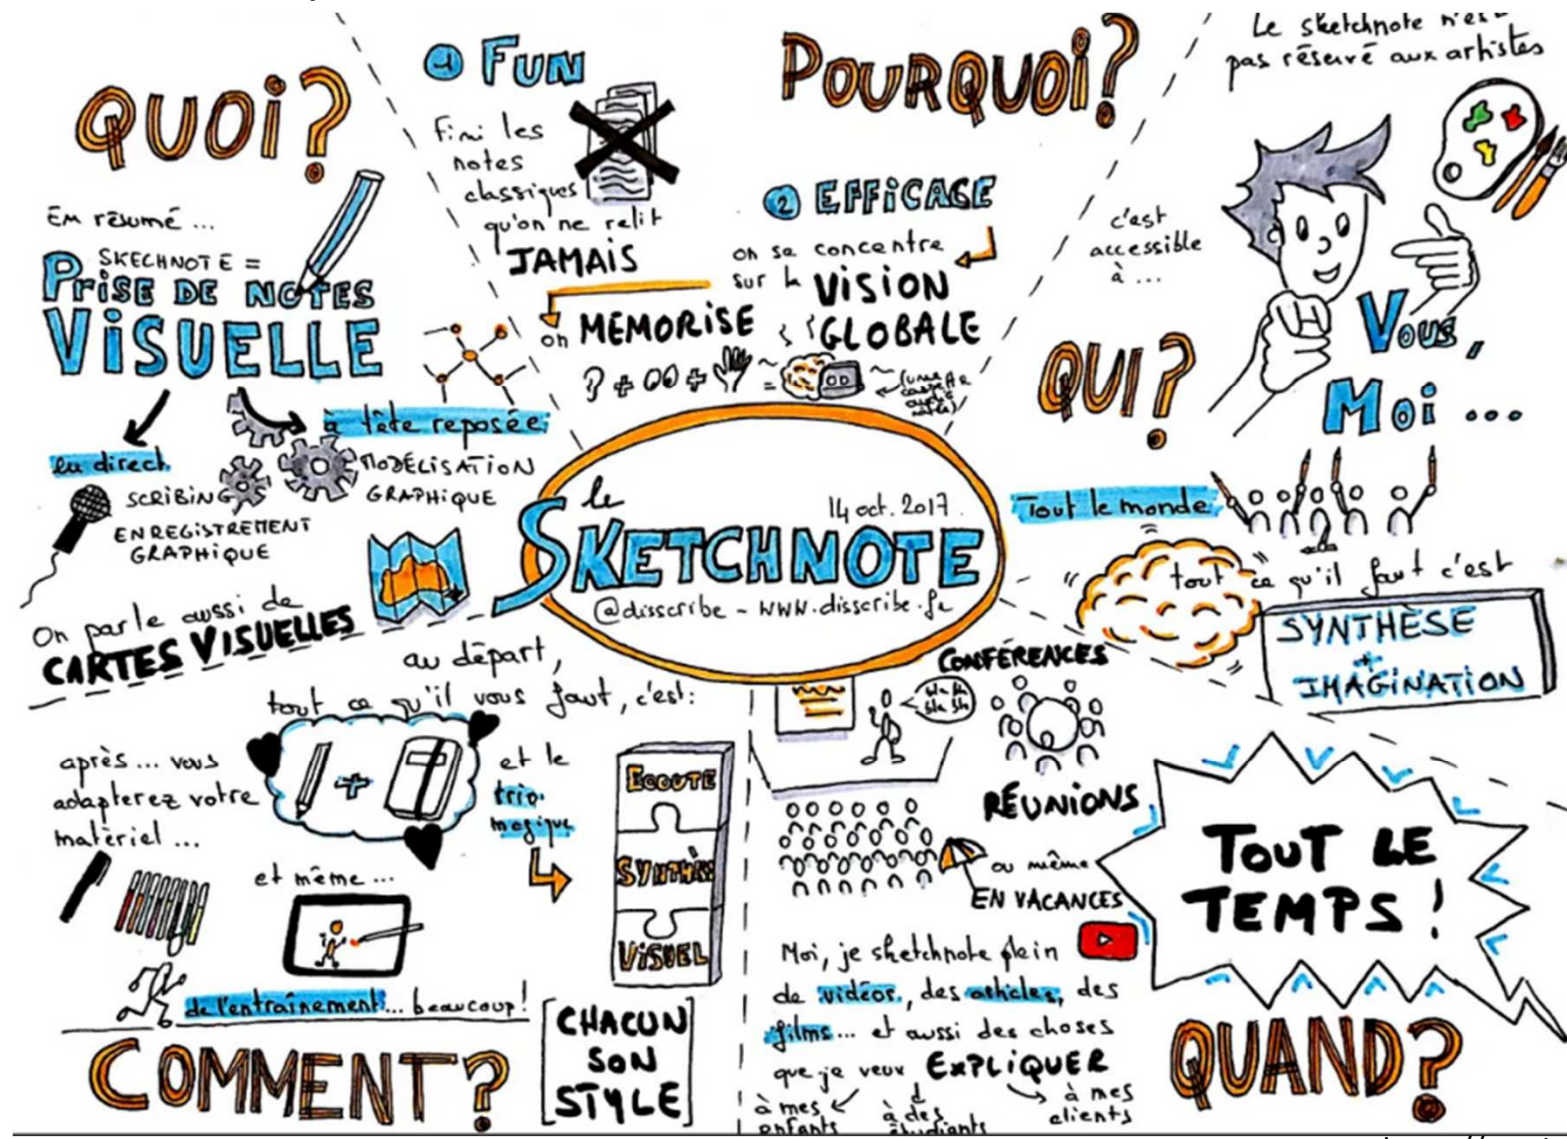 QUOI?
En résumé ...
SKECHNOTE =
PRISE DE NOTES
VISUELLE
en direct
SCRIBING
ENREGISTREMENT
GRAPHIQUE
à tête reposée
MODÉLISATION
GRAPHIQUE
On parle aussi de
CARTES VISUELLES
POURQUOI?
1 FUN
Fini les
notes
classiques
qu'on ne relit
JAMAIS
2 EFFICACE
on se concentre
sur la VISION
GLOBALE
on MEMORISE
? + + =
Le sketchnote n'est
pas réservé aux artistes
c'est
accessible
à ...
Vous,
Moi ...
QUI?
Tout le monde
tout ce qu'il faut c'est
SYNTHÈSE
+
IMAGINATION
le
14 oct. 2017.
SKETCHNOTE
@disscribe - www.disscribe.fr
au départ,
tout ce qu'il vous faut, c'est:
+
après... vous
adapterez votre
matériel ...
et même ...
et le
trio
magique
ECOUTE
SYNTHÈSE
VISUEL
de l'entraînement... beaucoup!
CHACUN
SON
STYLE
COMMENT?
CONFÉRENCES
bla bla
bla bla
RÉUNIONS
ou même
EN VACANCES
Moi, je sketchnote plein
de vidéos, des articles, des
films... et aussi des choses
que je veux EXPLIQUER
à mes
enfants
à des
étudiants
à mes
clients
TOUT LE
TEMPS !
QUAND?